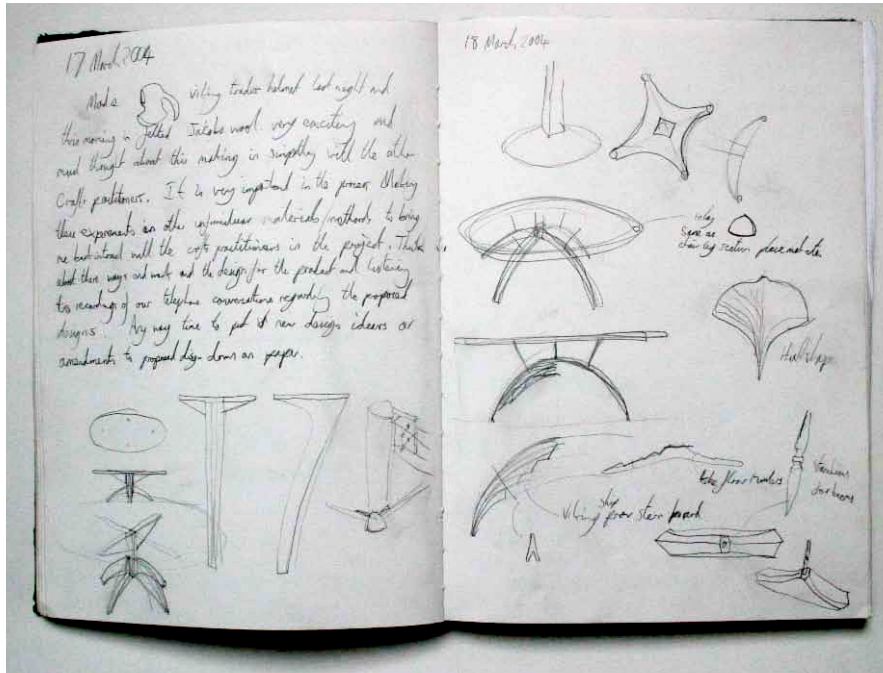 17 March 2004
Made viking trader helmet last night and
this morning in felted Jakobs wool. very exciting and
mind thought about this making in simpathy with the other
Craft practitioners. It is very important in the process Making
these experiments in other unfamiliar materials/methods to bring
me but intouch with the craft practitioners in the project. Thinking
about there ways and work and the design for the product and listening
to recordings of our telephone conversations regarding the proposed
designs. Any way time to put new design ideers or
amendments to proposed design down on paper.
18 March 2004
inlay
Same as
chair leg section place mat etc
Hull shape
take floor timbers
Viking ship prow stern board